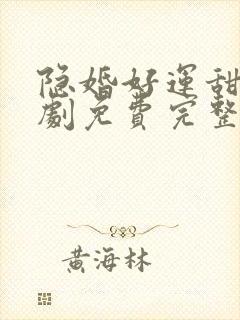 隐婚好運甜
劇免費完整
黃海林